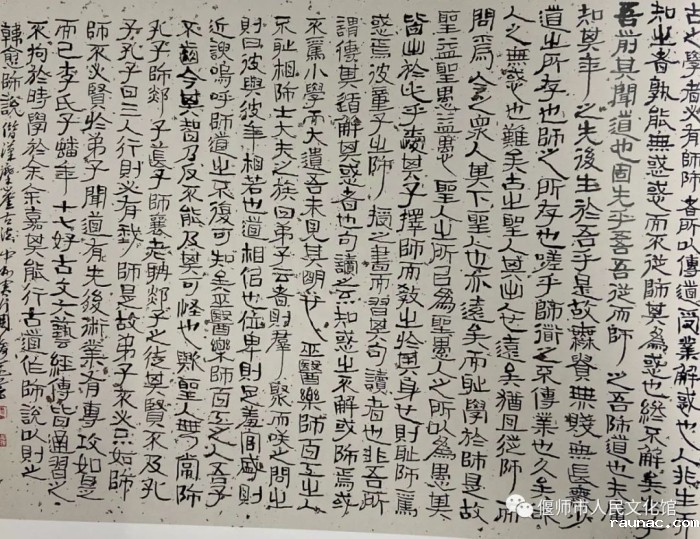 古之學者必有師師者所以傳道受業解惑也人非生而
知之者孰能無惑惑而不從師其為惑也終不解矣生乎
吾前其聞道也固先乎吾吾從而師之吾師道也夫庸
知其年之先後生於吾乎是故無貴無賤無長無少
道之所存也師之所存也嗟乎師道之不傳業也久矣欲
人之無惑也難矣古之聖人其出人也遠矣猶且從師而
問焉今之衆人其下聖人也亦遠矣而恥學於師是故
聖益聖愚益愚聖人之所以為聖愚人之所以為愚其
皆出於此乎愛其子擇師而教之於其身也則恥師焉
惑焉彼童子之師授之書而習其句讀者也非吾所
謂傳其道解其惑者也句讀之不知惑之不解或師焉或
不焉小學而大遺吾未見其明也巫醫樂師百工之人
不恥相師士大夫之族曰師曰弟子云者則羣聚而笑之問之
則曰彼與彼年相若也道相似也位卑則足羞官盛則
近諛嗚呼師道之不復可知矣巫醫樂師百工之人君子
不齒今其智乃反不能及其可怪也歟聖人無常師
孔子師郯子萇子師襄老聃郯子之徒其賢不及孔
子孔子曰三人行則必有我師是故弟子不必不如師
師不必賢於弟子聞道有先後術業有專攻如是
而已李氏子蟠年十七好古文六藝經傳皆通習之
不拘於時學於余余嘉其能行古道作師說以貽之
韓愈師說
偃师市人民文化馆
raunac.com